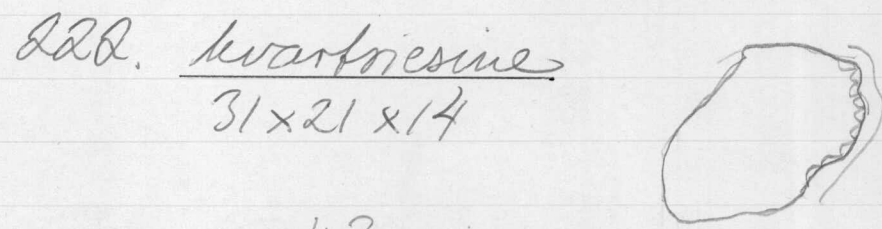 222. kvartsiesine
31x21x14